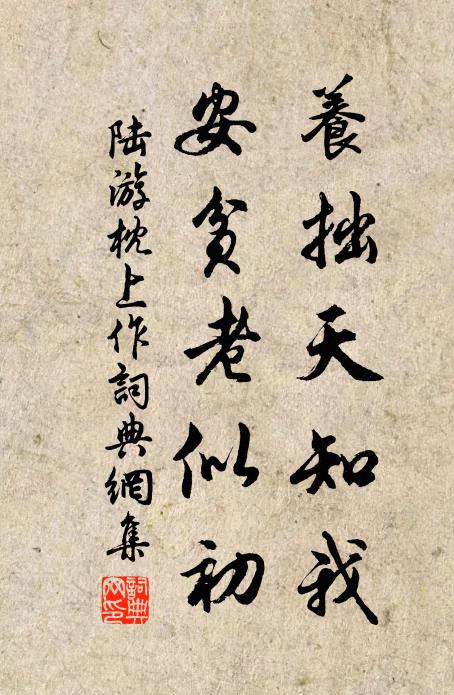 養拙天知我
安貧老似初
陸游枕上作詞典網集
詞典
网印